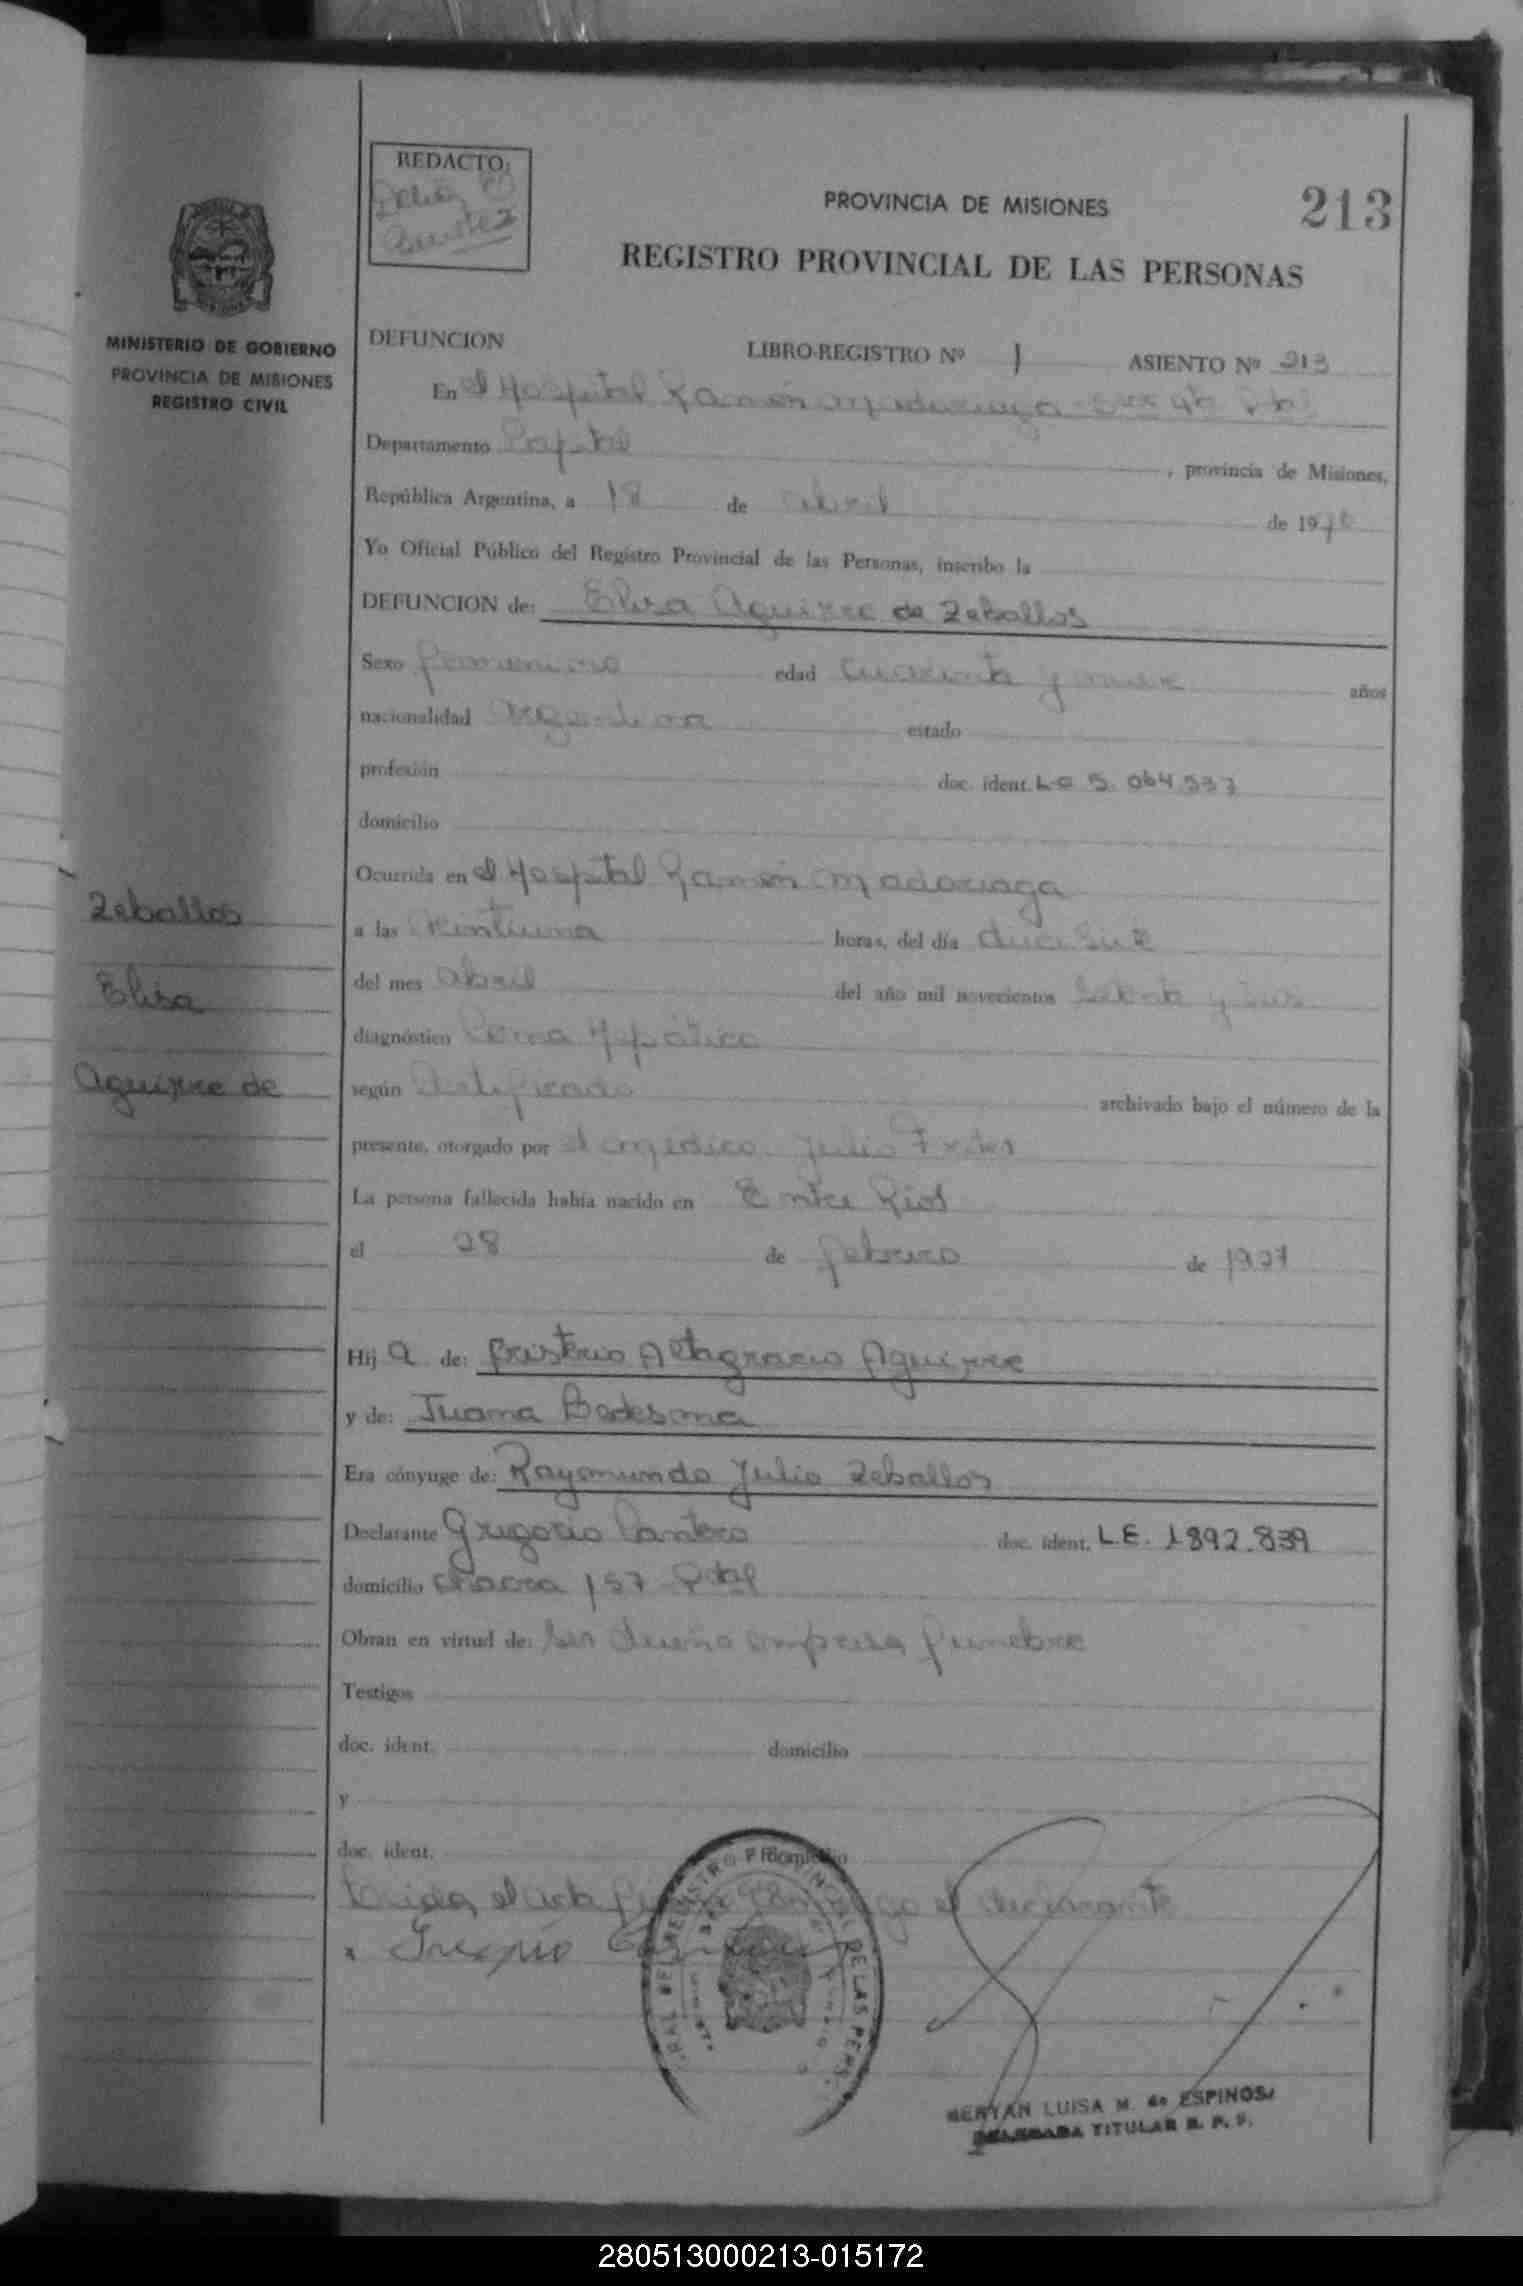 REDACTO:
PROVINCIA DE MISIONES
213
REGISTRO PROVINCIAL DE LAS PERSONAS
MINISTERIO DE GOBIERNO
PROVINCIA DE MISIONES
REGISTRO CIVIL
DEFUNCION LIBRO-REGISTRO Nº 1 ASIENTO Nº 213
En el Hospital Ramón Madariaga
Departamento Capital , provincia de Misiones,
República Argentina, a 18 de abril de 1976
Yo Oficial Público del Registro Provincial de las Personas, inscribo la
DEFUNCION de: Elisa Aguirre de Zeballos
Sexo femenino edad cuarenta y nueve años
nacionalidad Argentina estado
profesión doc. ident. LC 5.064.537
domicilio
Ocurrida en el Hospital Ramón Madariaga
Zeballos
Elisa
Aguirre de
a las veintiuna horas, del día diecisiete
del mes abril del año mil novecientos setenta y seis
diagnóstico Coma Hepático
según Certificado archivado bajo el número de la
presente, otorgado por el medico Julio
La persona fallecida había nacido en Entre Rios
el 28 de febrero de 1927
Hij a de: Altagracio Aguirre
y de: Juana
Era cónyuge de: Raymundo Julio Zeballos
Declarante Gregorio Cantero doc. ident. L.E. 1892.839
domicilio chacra 157 - Pdas
Obran en virtud de: ser dueño empresa funebre
Testigos
doc. ident. domicilio
y
doc. ident. domicilio
Leida el acta el declarante
LUISA M. de ESPINOSA
DELEGADA TITULAR R. P. P.
280513000213-015172